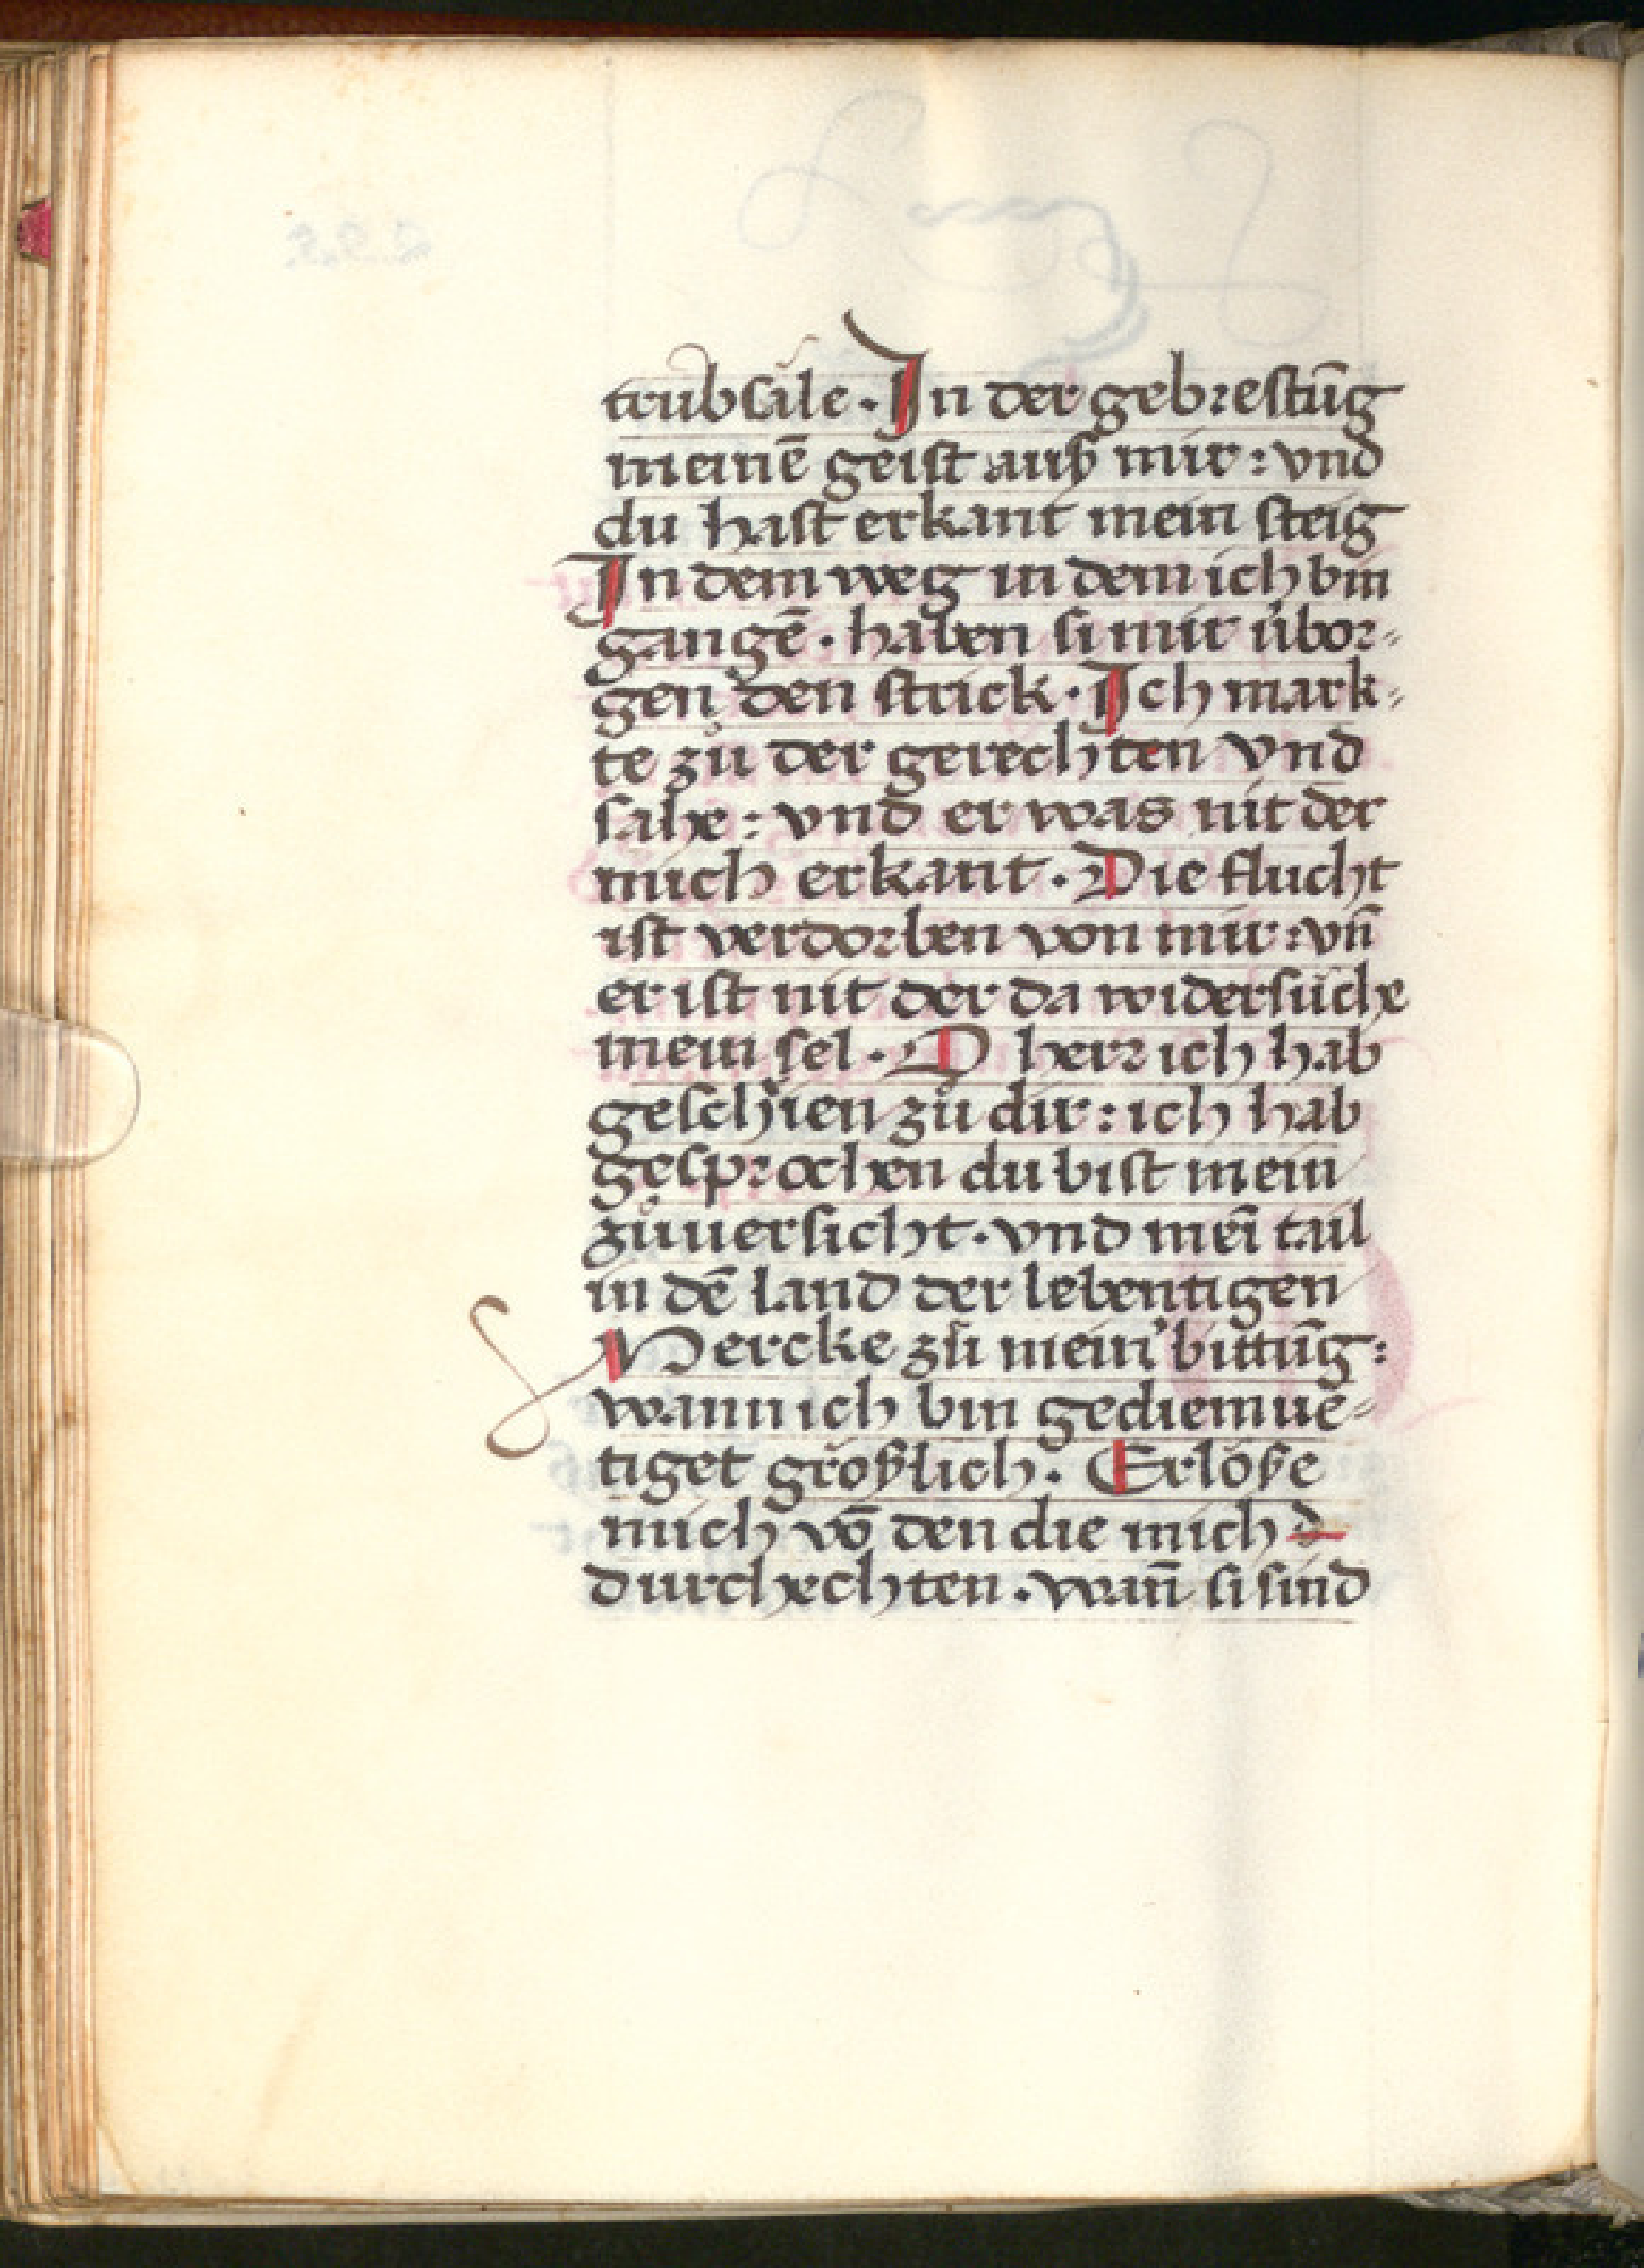 trübsäle · In der gebrestūg
meinē geist auß mir : vnd
du hast erkant mein steig
In dem weg in dem ich bin
gangē · haben si mir v̉bor⸗
gen den strick · Ich mark⸗
te zů der gerechten vnd
sahe : vnd er was nit der
mich erkant · Die flucht
ist verdorben von mir : vn̄
er ist nit der da widersůche
mein sel · O herr ich hab
geschrien zů dir : ich hab
gesprochen du bist mein
zůuersicht · vnd mei̅ tail
in dē land der lebentigen
Mercke zů mein̉ bittūg :
wann ich bin gediemue⸗
tiget grȫßlich · Erlöse
mich vō den die mich d
durchechten · wan̄ si sind